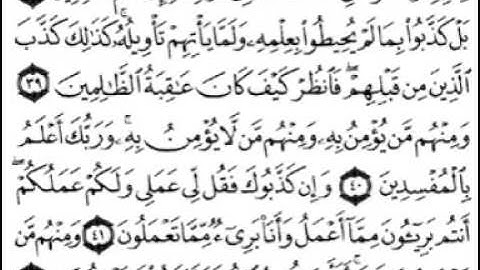 بَلْ كَذَّبُوا۟ بِمَا لَمْ يُحِيطُوا۟ بِعِلْمِهِۦ وَلَمَّا يَأْتِهِمْ تَأْوِيلُهُۥ ۚ كَذَٰلِكَ كَذَّبَ
ٱلَّذِينَ مِن قَبْلِهِمْ ۖ فَٱنظُرْ كَيْفَ كَانَ عَـٰقِبَةُ ٱلظَّـٰلِمِينَ ٣٩
وَمِنْهُم مَّن يُؤْمِنُ بِهِۦ وَمِنْهُم مَّن لَّا يُؤْمِنُ بِهِۦ ۚ وَرَبُّكَ أَعْلَمُ
بِٱلْمُفْسِدِينَ ٤٠ وَإِن كَذَّبُوكَ فَقُل لِّى عَمَلِى وَلَكُمْ عَمَلُكُمْ ۖ
أَنتُم بَرِيٓـُٔونَ مِمَّآ أَعْمَلُ وَأَنَا۠ بَرِىٓءٌ مِّمَّا تَعْمَلُونَ ٤١ وَمِنْهُم مَّن